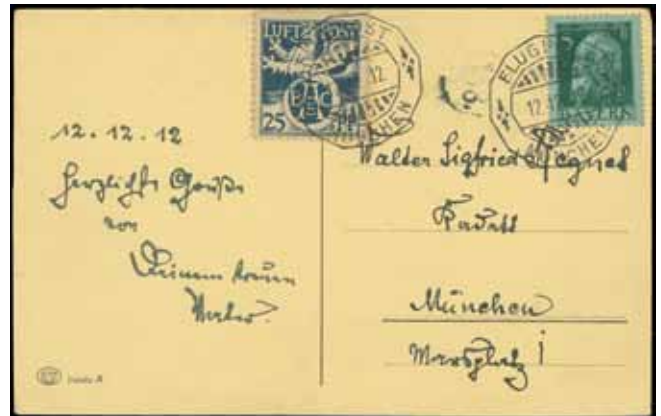 LUFTPOST
25
FLUG
MÜNCHEN
12.12.12
Herzlichste Grüße
von
Deinem treuen
Vater.
Walter Sigfried
Kadett
München
Marsplatz 1